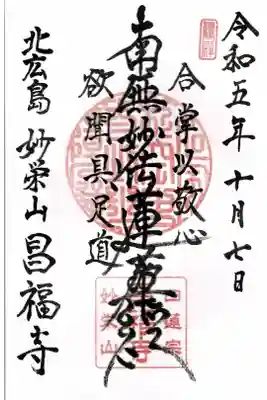 令和五年十月七日
合掌以敬心
南無妙法蓮華経
欲聞具足道
北広島 妙栄山 昌福寺
日蓮宗
妙栄山